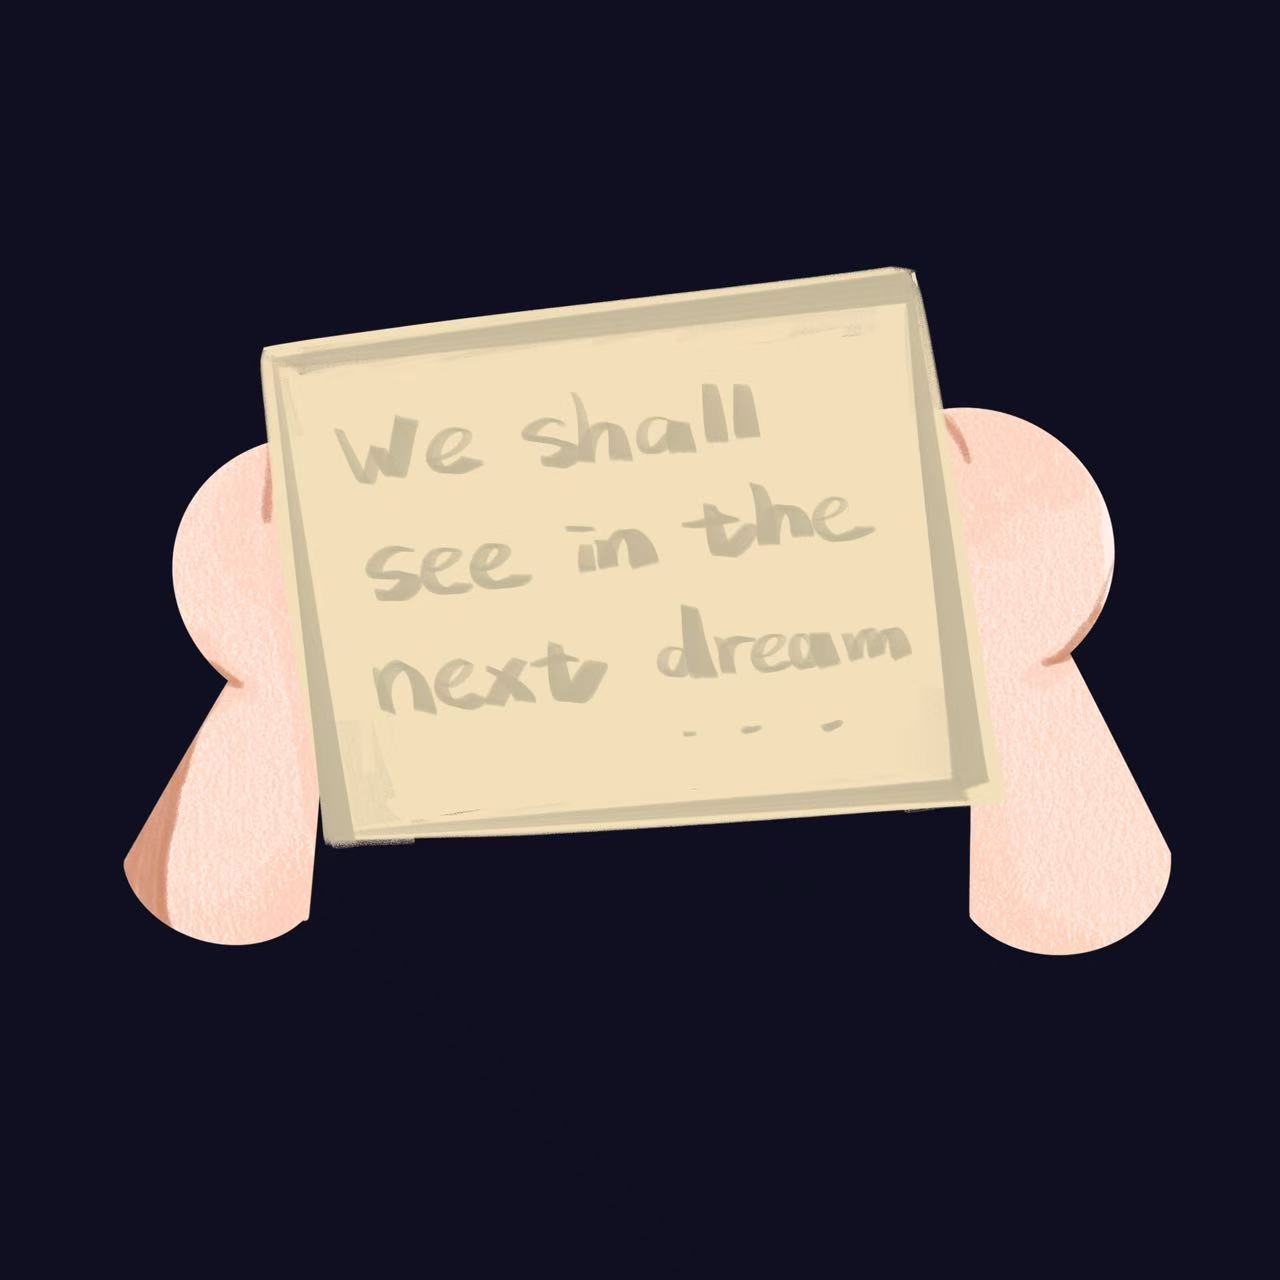 We shall
see in the
next dream
...